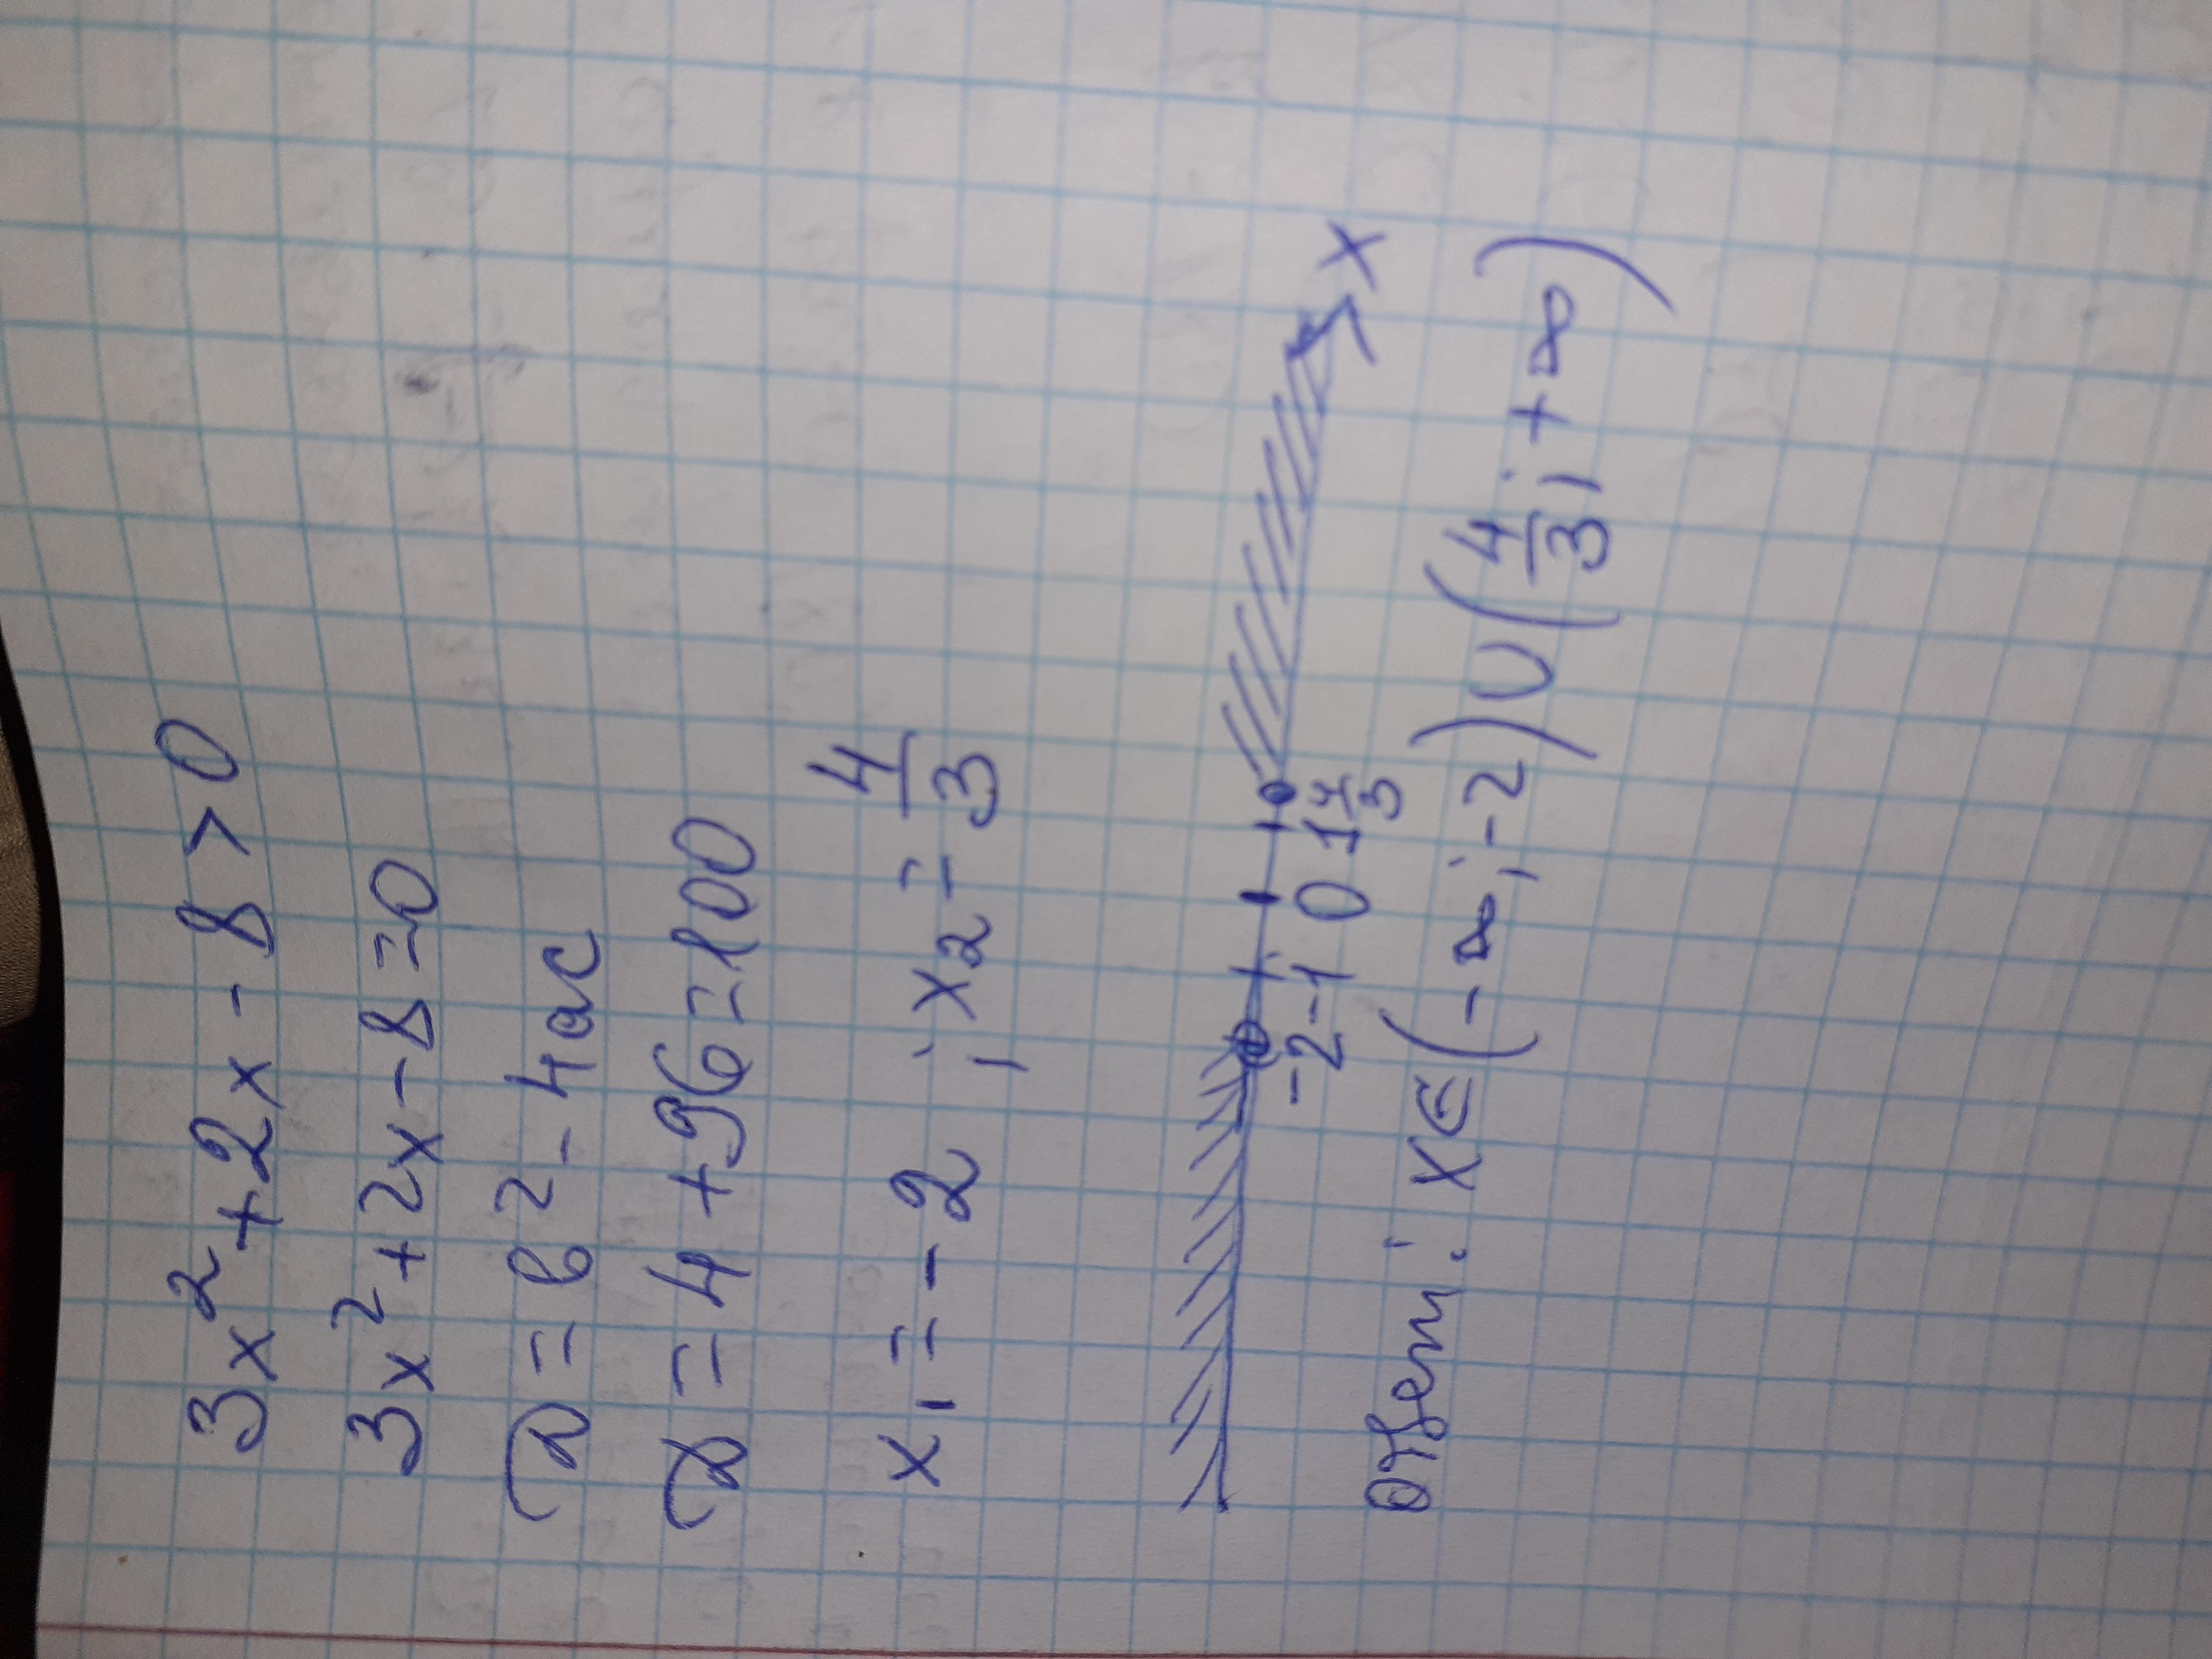 3x² + 2x - 8 > 0
3x² + 2x - 8 = 0
D = b² - 4ac
D = 4 + 96 = 100
x₁ = -2 ; x₂ = 4/3
-2 -1 0 1 4/3 x
Ответ: x ∈ (-∞; -2) ∪ (4/3; +∞)